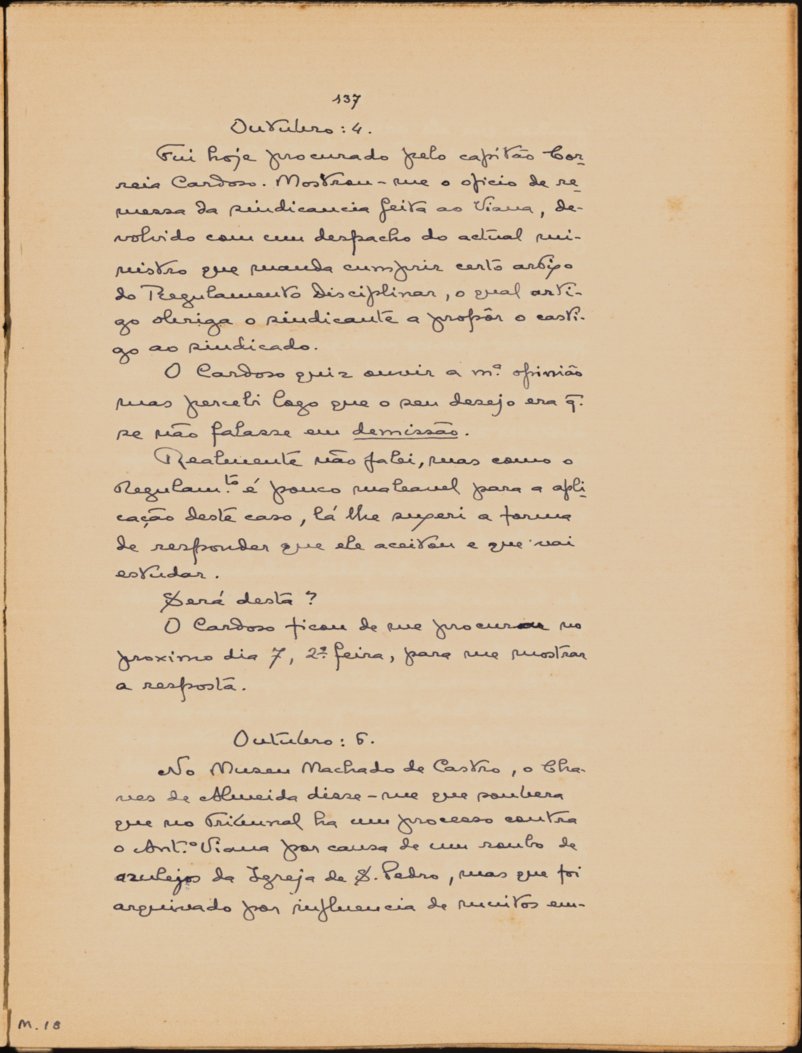 137
Outubro: 4.
Fui hoje procurado pelo capitão Cor-
reia Cardoso. Mostrou-me o oficio de re-
messa da sindicancia feita ao Viana, de-
volvido com um despacho do actual mi-
nistro que manda cumprir certo artigo
do Regulamento Disciplinar, o qual arti-
go obriga o sindicante a propôr o casti-
go ao sindicado.
O Cardoso quiz ouvir a m.ª opinião
mas percebi logo que o seu desejo era q̃.
se não falasse em demissão.
Realmente não falei, mas como o
Regulam.to é pouco maleavel para a apli-
cação deste caso, lá lhe sugeri a forma
de responder que ele aceitou e que vai
estudar.
Será desta?
O Cardoso ficou de me procurar no
proximo dia 7, 2.ª feira, para me mostrar
a resposta.
Outubro: 6.
No Museu Machado de Castro, o Cha-
ves de Almeida disse-me que soubera
que no Tribunal ha um processo contra
o Ant.º Viana por causa de um roubo de
azulejos da Igreja de S. Pedro, mas que foi
arquivado por influencia de muitos em-
M. 18